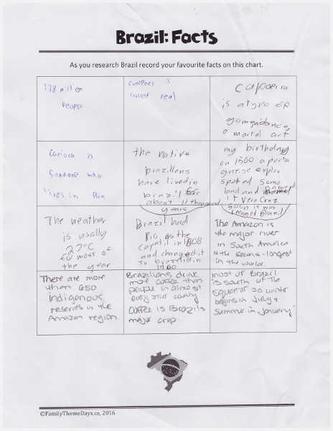 Brazil: Facts
As you research Brazil record your favourite facts on this chart.
people
currency is
called real
Capoeira
is a type of
martial art
Carioca is
someone who
lives in Rio
the native
brazilians
have lived in
brazil for
about 11 thousand
years
my birthday
on 1500 a portu
guese explor
spotted some
land and named
it Vera Cruz
The weather
is usually
27°C
most of
the year
Brazil had
Rio as the
capital in 1808
and changed it
to brazilia in
1960
The Amazon is
the major river
in South America
in the world
There are more
than 650
Indigenous
reserves in the
Amazon region
Brazilians drink
more coffee than
people in almost
every other country
coffee is Brazil's
major crop
most of Brazil
is south of the
equator so winter
begins in July &
summer in January
©FamilyThemeDays.ca, 2016